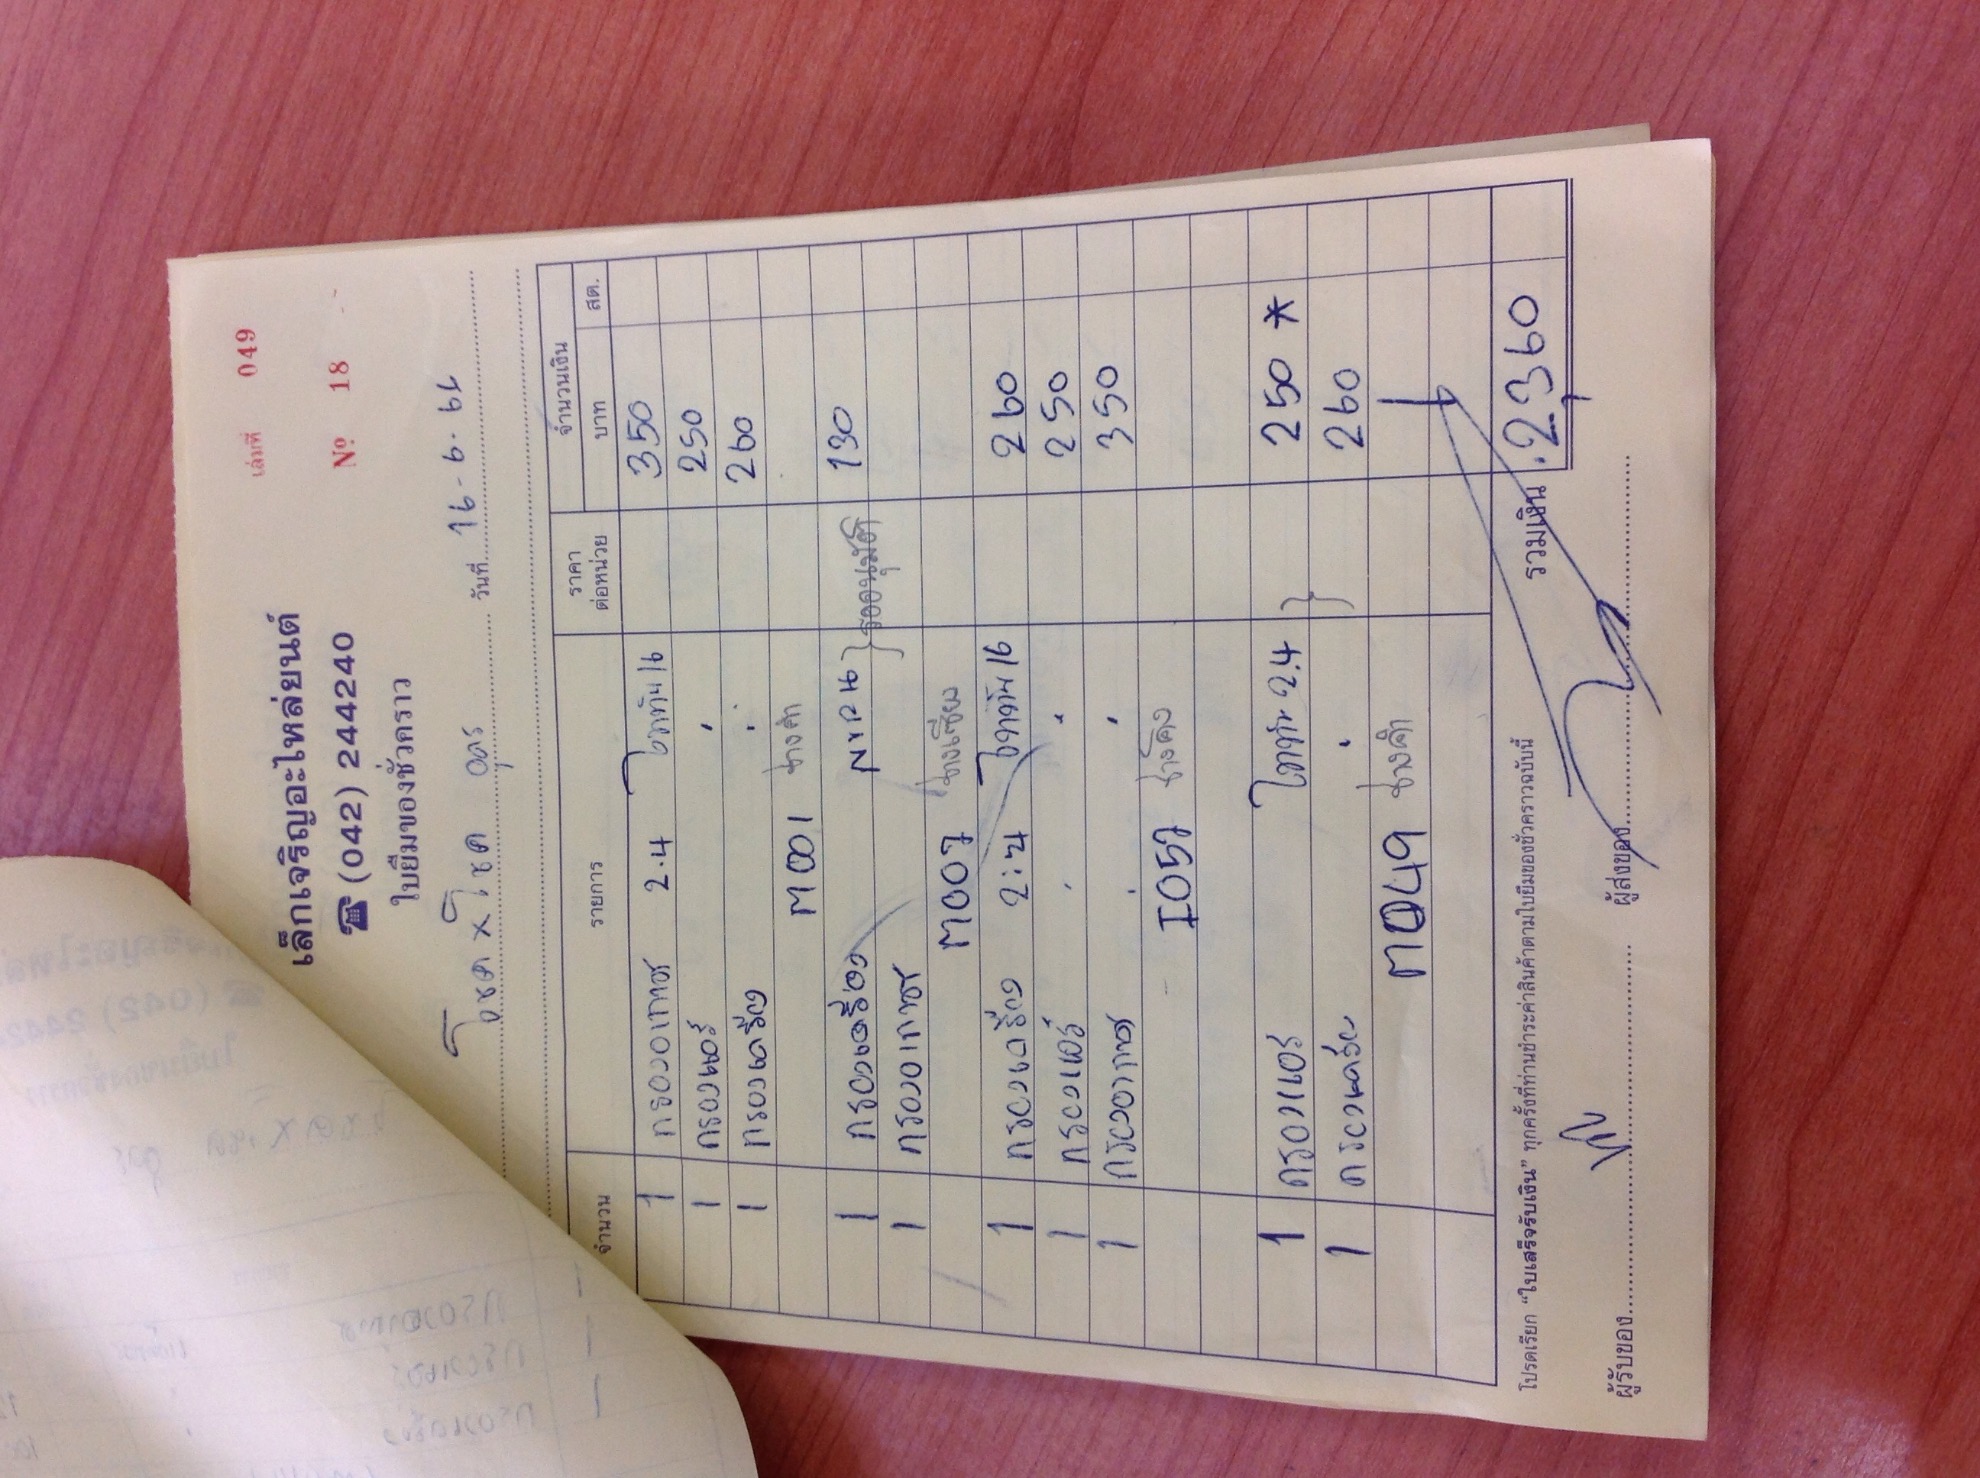 เล่มที่ 049
เล็กเจริญอะไหล่ยนต์
☎ (042) 244240 № 18
ใบยืมของชั่วคราว
โชค x โชค อุดร วันที่ 16-6-62
จำนวน รายการ ราคาต่อหน่วย จำนวนเงิน
บาท สต.
1 กรอง 2.4 ไททัน 16 350
1 กรองแอร์ " 250
1 กรองเครื่อง " 260
M001 ช่างดำ
1 กรองเครื่อง 130
1 กรอง รออนุมัติ
M007 ช่างเซียม
1 กรองเครื่อง ไททัน 16 260
1 กรองแอร์ " " 250
1 กรอง " " 350
I057 ช่างโด่ง
1 กรองแอร์ ไททัน 2.4 250 *
1 กรองเครื่อง " 260
M049 ช่างดำ
รวมเงิน 2,360
โปรดเรียก "ใบเสร็จรับเงิน" ทุกครั้งที่ท่านชำระค่าสินค้าตามใบยืมของชั่วคราวฉบับนี้
ผู้รับของ ผู้ส่งของ